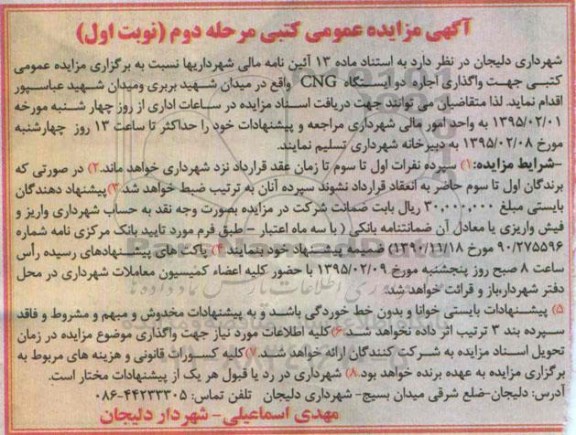 آگهی مزایده عمومی کتبی مرحله دوم (نوبت اول)
شهرداری دلیجان در نظر دارد به استناد ماده ۱۳ آئین نامه مالی شهرداریها نسبت به برگزاری مزایده عمومی
کتبی جهت واگذاری اجاره دو ایستگاه CNG واقع در میدان شهید بربری ومیدان شهید عباسپور
اقدام نماید. لذا متقاضیان می توانند جهت دریافت اسناد مزایده در ساعات اداری از روز چهار شنبه مورخه
۱۳۹۵/۰۲/۰۱ به واحد امور مالی شهرداری مراجعه و پیشنهادات خود را حداکثر تا ساعت ۱۳ روز چهارشنبه
مورخ ۱۳۹۵/۰۲/۰۸ به دبیرخانه شهرداری تسلیم نمایند.
-شرایط مزایده:۱) سپرده نفرات اول تا سوم تا زمان عقد قرارداد نزد شهرداری خواهد ماند.۲) در صورتی که
برندگان اول تا سوم حاضر به انعقاد قرارداد نشوند سپرده آنان به ترتیب ضبط خواهد شد.۳) پیشنهاد دهندگان
بایستی مبلغ ۳۰,۰۰۰,۰۰۰ ریال بابت ضمانت شرکت در مزایده بصورت وجه نقد به حساب شهرداری واریز و
فیش واریزی یا معادل آن ضمانتنامه بانکی ( با سه ماه اعتبار – طبق فرم مورد تایید بانک مرکزی نامه شماره
۹۰/۲۷۵۵۹۶ مورخ ۱۳۹۰/۱۱/۱۸) ضمیمه پیشنهاد خود بنمایند.۴) پاکت های پیشنهادهای رسیده رأس
ساعت ۸ صبح روز پنجشنبه مورخ ۱۳۹۵/۰۲/۰۹ با حضور کلیه اعضاء کمیسیون معاملات شهرداری در محل
دفتر شهردار،باز و قرائت خواهد شد.
۵) پیشنهادات بایستی خوانا و بدون خط خوردگی باشد و به پیشنهادات مخدوش و مبهم و مشروط و فاقد
سپرده بند ۳ ترتیب اثر داده نخواهد شد.۶) کلیه اطلاعات مورد نیاز جهت واگذاری موضوع مزایده در زمان
تحویل اسناد مزایده به شرکت کنندگان ارائه خواهد شد.۷) کلیه کسورات قانونی و هزینه های مربوط به
برگزاری مزایده به عهده برنده خواهد بود.۸) شهرداری در رد یا قبول هر یک از پیشنهادات مختار است.
آدرس: دلیجان-ضلع شرقی میدان بسیج- شهرداری دلیجان تلفن تماس: ۴۴۲۳۳۳۰۵-۰۸۶
مهدی اسماعیلی- شهردار دلیجان